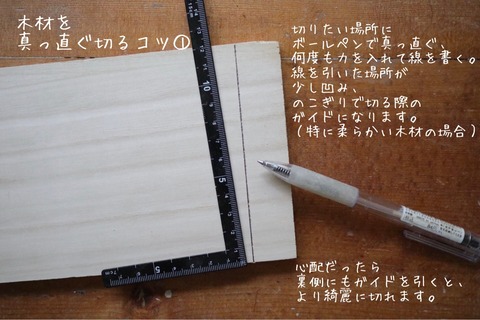 木材を
真っ直ぐ切るコツ①
切りたい場所に
ボールペンで真っ直ぐ、
何度も力を入れて線を書く。
線を引いた場所が
少し凹み、
のこぎりで切る際の
ガイドになります。
(特に柔らかい木材の場合)
10
5
7cm
5
心配だったら
裏側にもガイドを引くと、
より綺麗に切れます。